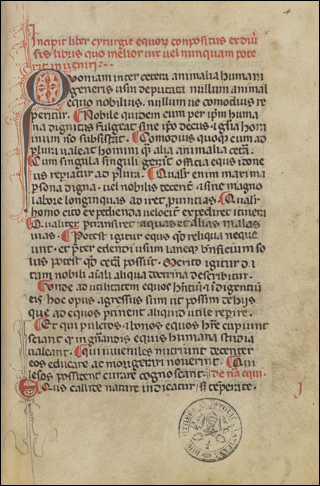 Incipit liber cyrurgie equor̄ conpositus ex diu̾
sis libris quo melior uix uel nunquam pote
rit inueniri.
Quoniam inter cetera animalia humani
generis usui deputata nullum animal
equo nobilius. nullum ue comodius re
peritur. Nobile quidem cum per ip̄m huma
na dignitas fulgeat sine ip̄o decus ⁊ gl̄ia homi
num nō subsistat. Comodius quoq̄ cum ad
plura ualeat homini q̄ alia animalia cetā
Cum singula singulis officia equs
ue repiatur ad plura. Qualr̄ enim maxima
psona digna. uel nobilis decent̄ ⁊ sine magno
labore longinquas adiret puincias. Qualr̄
homo cito expedienda uelocit̄ expediret itinera
Qualiter pertransiret aquas et alias malas
uias. Potest igitur equs q̄d reliqua neque
unt. et pter edendi usum iuncq̄ bn̄ficium so
lus potest q̄d cetā possūt. Merito igitur d̄ i
tam nobili aīali aliqua doctrina describitur.
Vnde ad utilitatem equos h̄ntiū ⁊ idigentiū
eis hoc opus agressus sum ut possim de hiis
que ad equos ptinent aliquid utile repire.
Et qui pulcros ⁊ bonos equos h̄re cupiunt
sciant q̄r in equis humana studia
ualeant. Qui iuueniles nutriunt decenter
eos educare ac morigerari nouerint. Qui
lesos possident curare cognoscant. De nā equi.
Equs callide nature indicatur s̄ temperate.